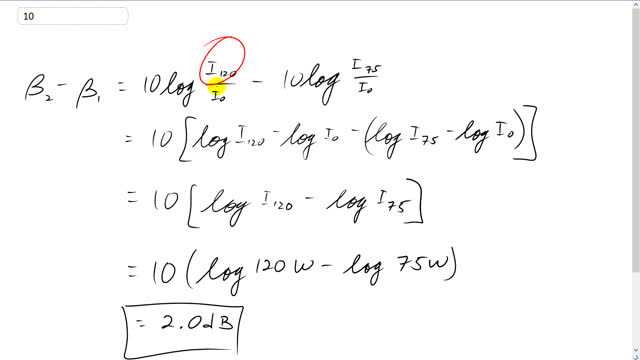 10
β₂ - β₁ = 10 log I₁₂₀/I₀ - 10 log I₇₅/I₀
= 10 [log I₁₂₀ - log I₀ - (log I₇₅ - log I₀)]
= 10 [log I₁₂₀ - log I₇₅]
= 10 (log 120W - log 75W)
= 2.0dB